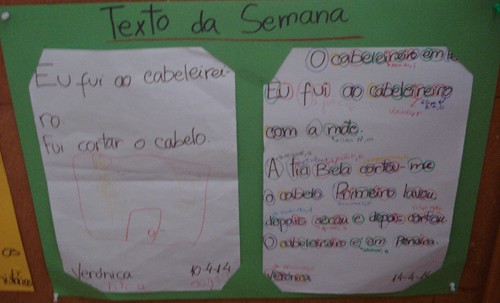 Texto da Semana
Eu fui ao cabeleirei-
ro
Fui cortar o cabelo.
Verónica 10-4-14
O cabeleireiro em
Eu fui ao cabeleireiro
com a mãe.
A tia Bela cortou-me
o cabelo. Primeiro lavou,
depois secou e depois cortou.
O cabeleireiro é em
Verónica 14-4-14
os